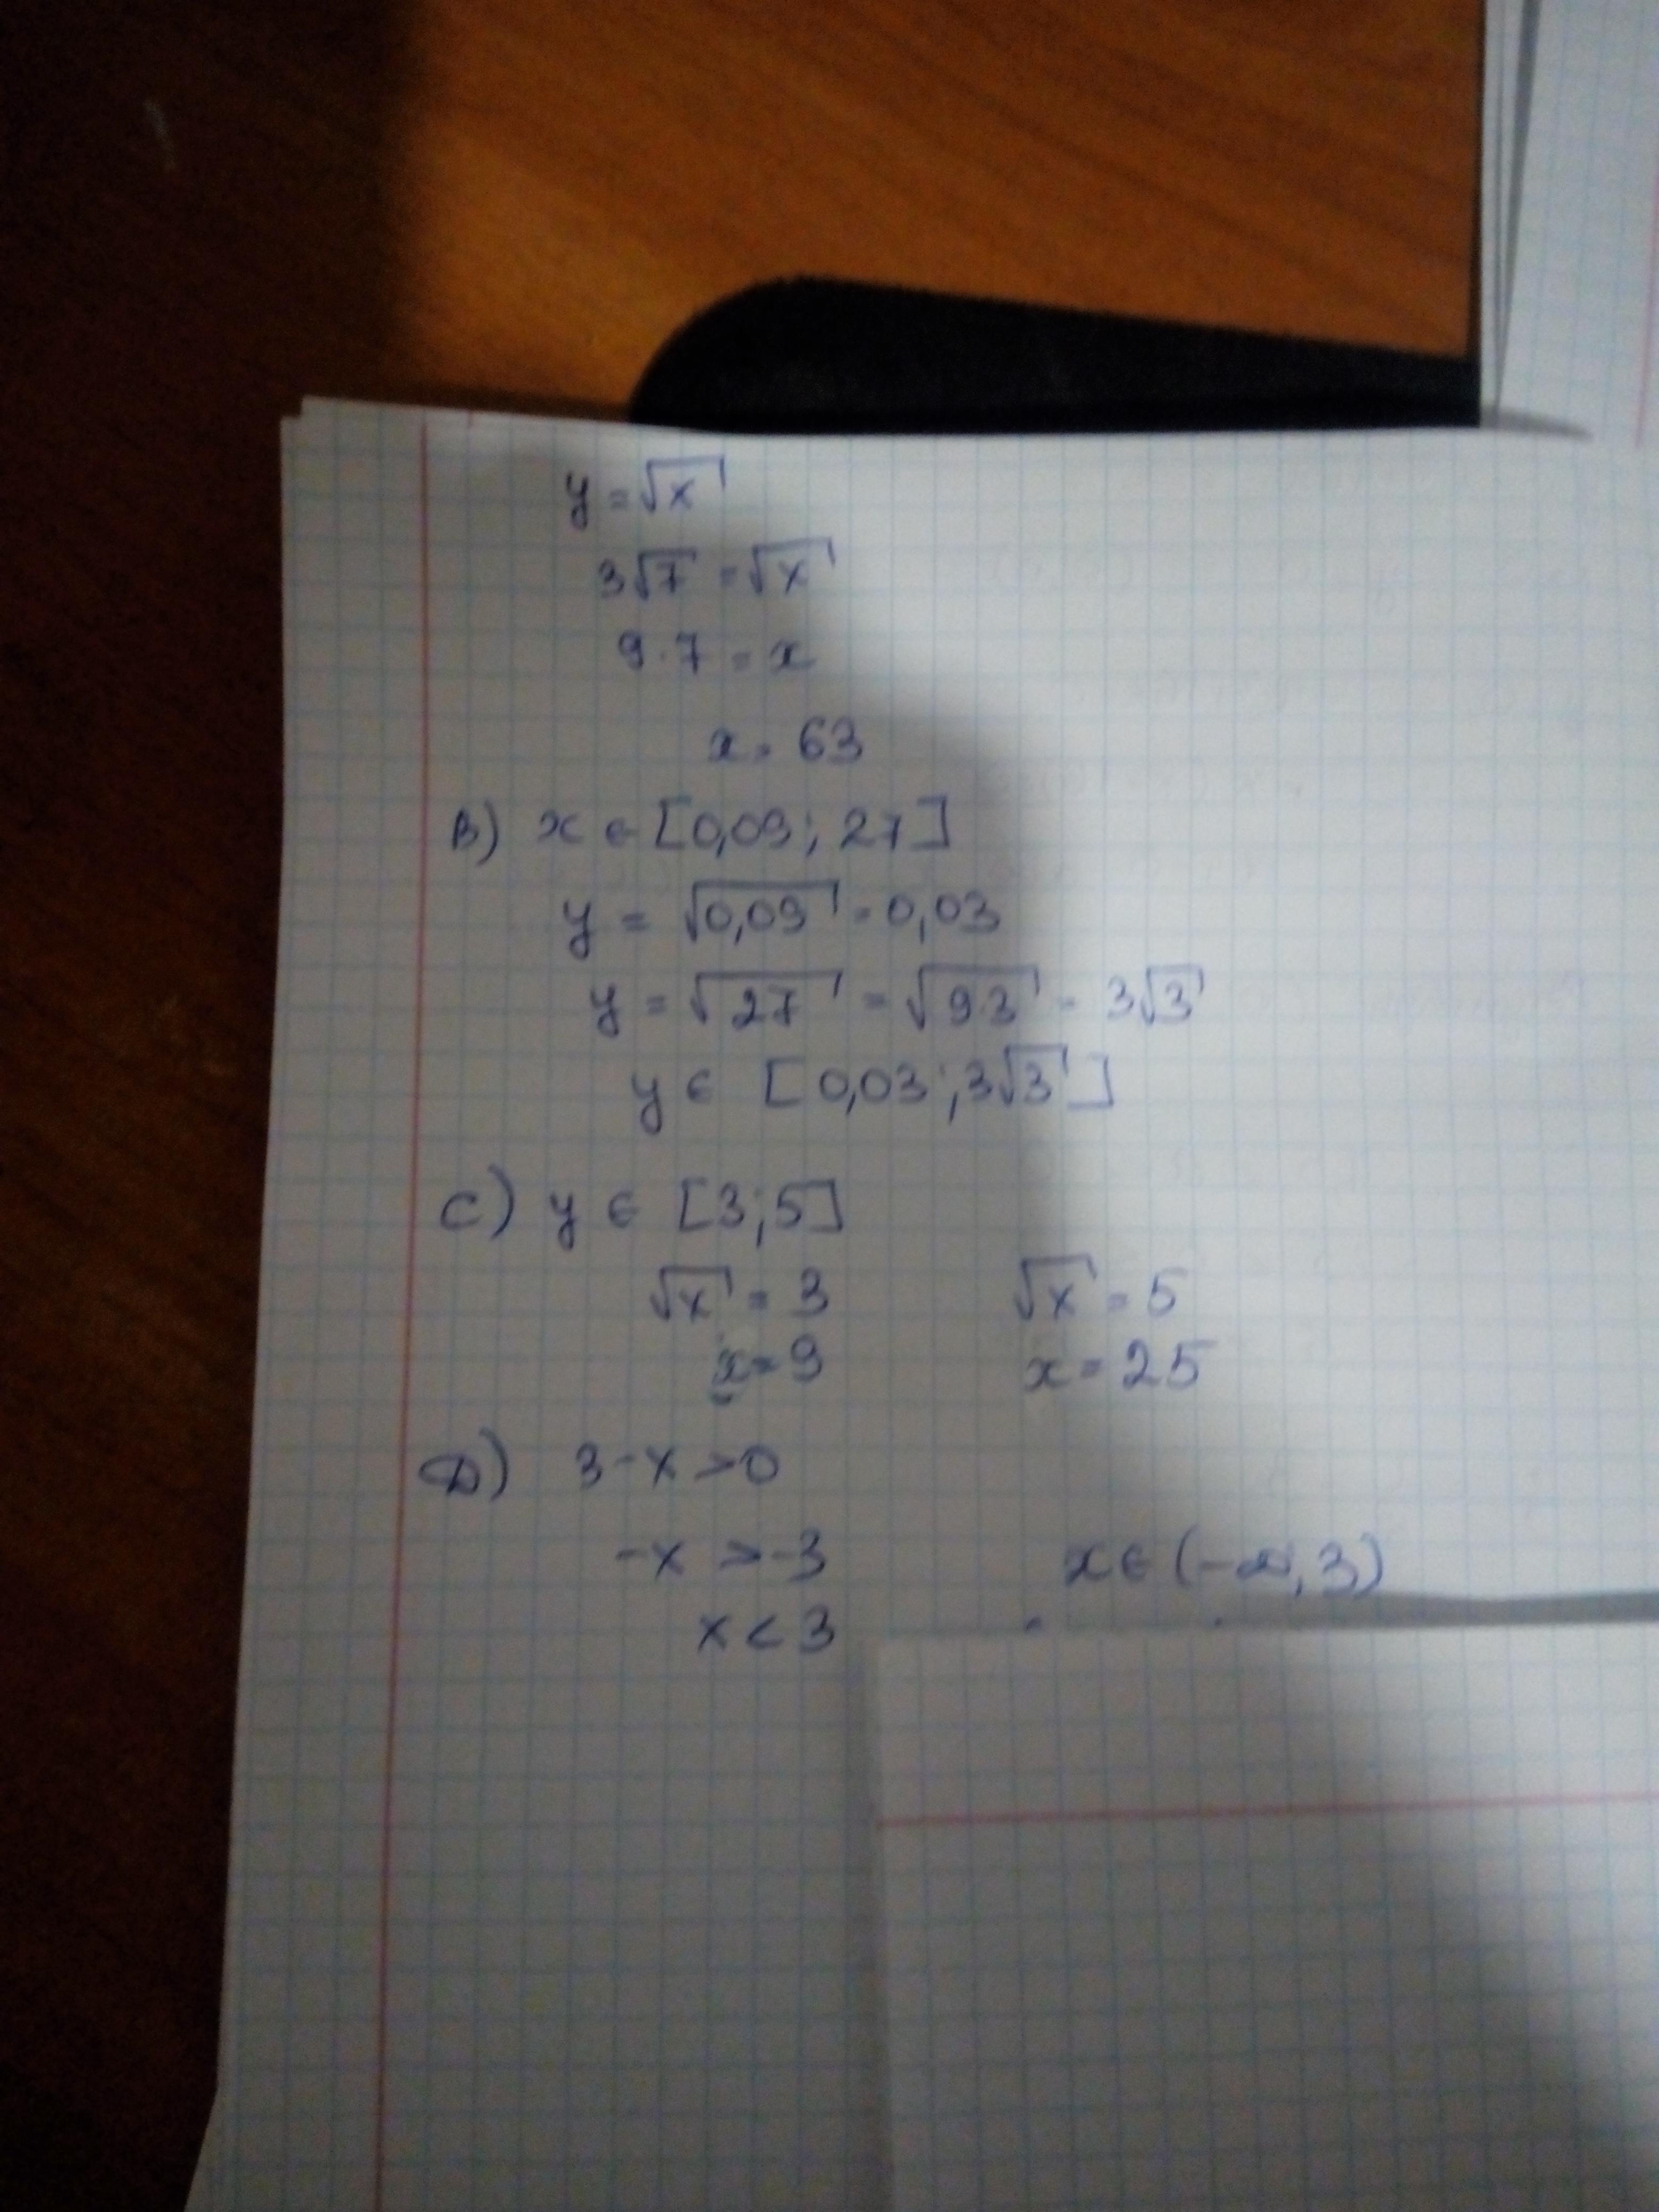 y = √x
3√7 = √x
9·7 = x
x = 63
B) x ∈ [0,09; 27]
y = √0,09 = 0,03
y = √27 = √9·3 = 3√3
y ∈ [0,03; 3√3]
C) y ∈ [3; 5]
√x = 3 √x = 5
x = 9 x = 25
D) 3-x > 0
-x > -3 x ∈ (-∞, 3)
x < 3